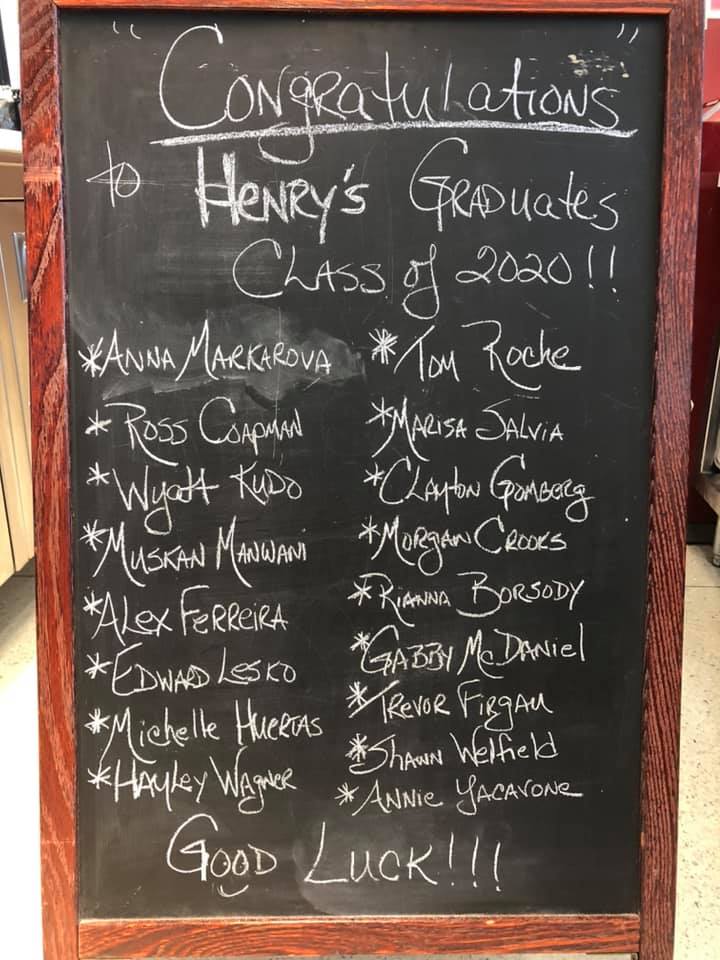 "Congratulations"
to Henry's Graduates
Class of 2020!!
*Anna Markarova
* Ross Coapman
* Wyatt Kudo
*Muskan Manwani
*Alex Ferreira
*Edward Lesko
*Michelle Huertas
*Hayley Wagner
*Tom Roche
*Marisa Salvia
*Clayton Gomberg
*Morgan Crooks
*Rianna Borsody
*Gabby McDaniel
*Trevor Firgau
*Shawn Welfield
*Annie Yacavone
Good Luck!!!